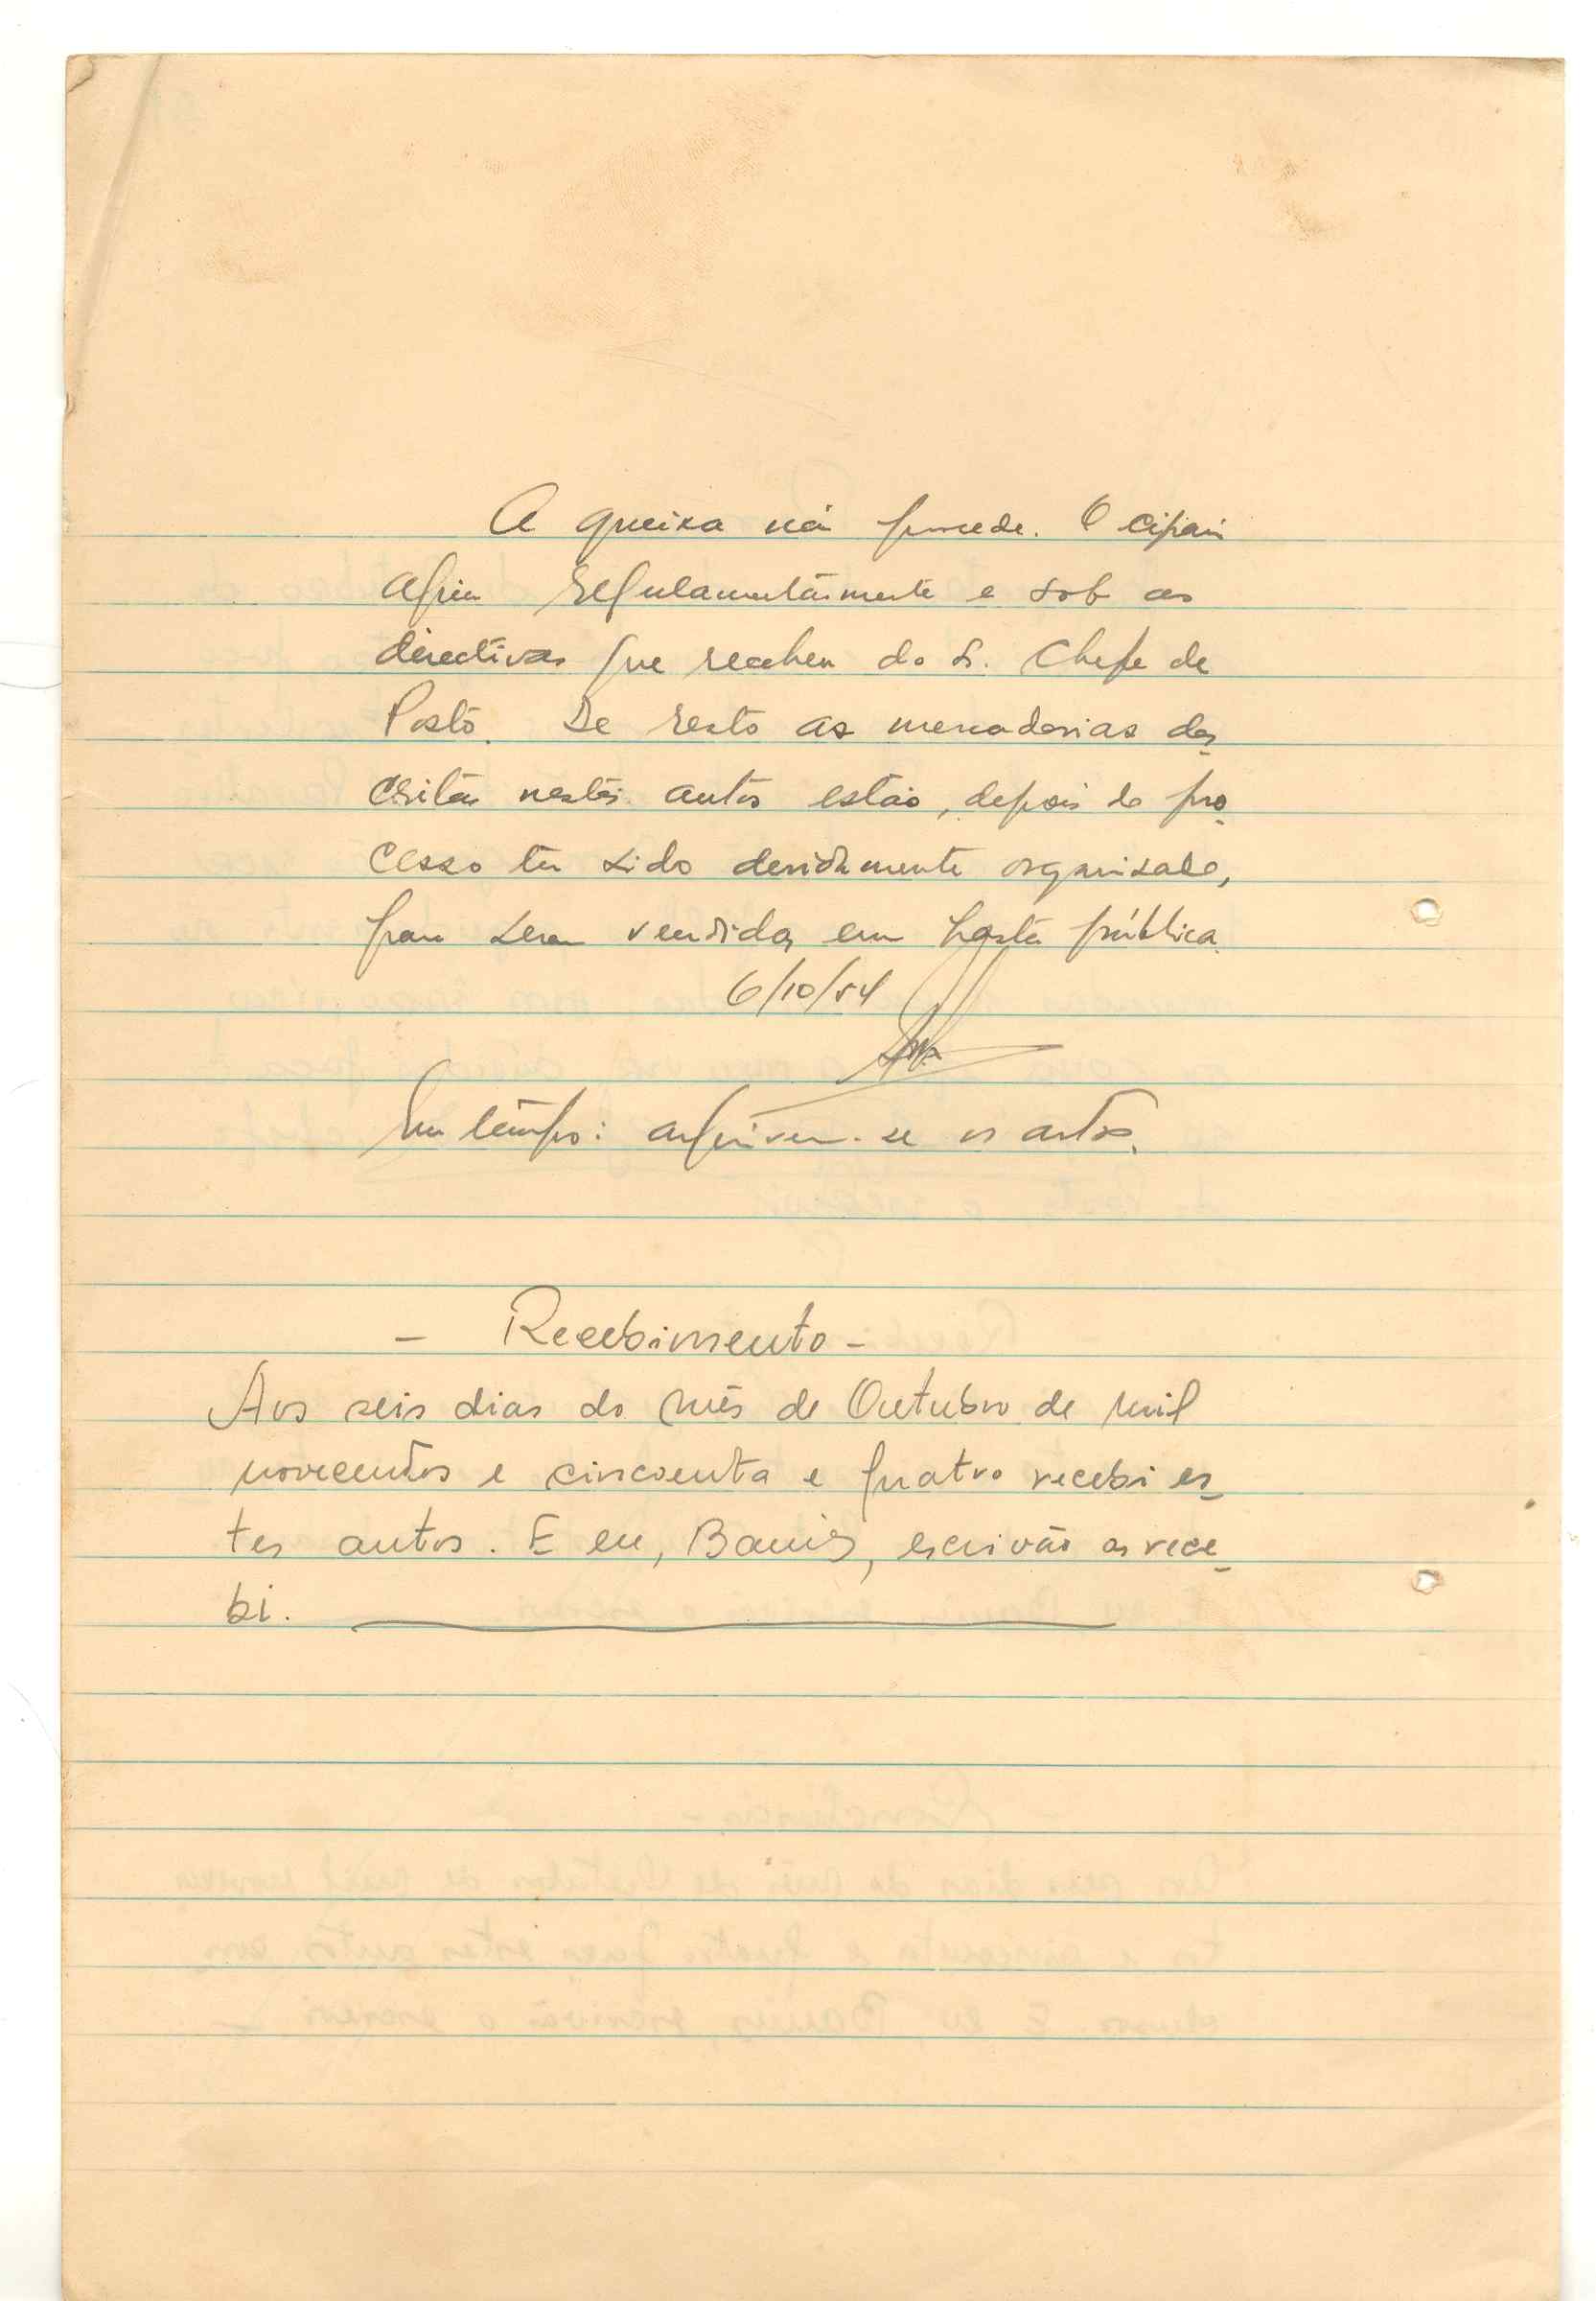 A queixa não procede. O cipaio
agiu regulamentarmente e sob as
directivas que recebeu do Sr. Chefe de
Posto. De resto as mercadorias des
critas nestes autos estão, depois do pro
cesso ter sido devidamente organizado,
para serem vendidas em hasta pública.
6/10/54
Em tempo: arquivem-se os autos.
- Recebimento -
Aos seis dias do mês de Outubro de mil
novecentos e cincoenta e quatro recebi es
tes autos. E eu, , escrivão os rece
bi.